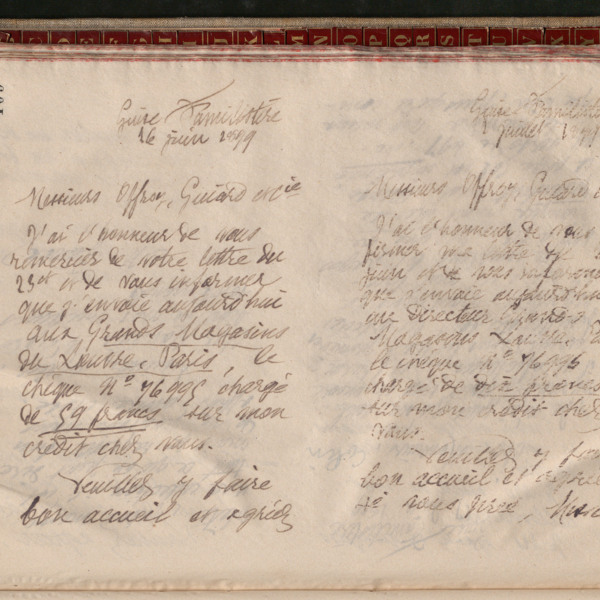 Guise Familistère
16 juin 1899
Messieurs Offroy, Guiard et Cie
J'ai l'honneur de vous
remercier de votre lettre du
23 et de vous informer
que j'envoie aujourd'hui
aux Grands Magasins
du Louvre, Paris, le
chèque No 76995, chargé
de 59 francs sur mon
crédit chez vous.
Veuillez y faire
bon accueil et agréez
Guise Familistè
juillet
Messieurs Offroy, Guiard
J'ai l'honneur de vous
ma lettre
juin et de vous
que j'envoie aujourd'hui
au Directeur Grands
Magasins Louvre, Pa
le chèque No 76996
chargé de francs
sur mon crédit chez
vous.
Veuillez y fai
bon accueil et agrée
je vous prie, Mess
K L M N O P Q R S T U V